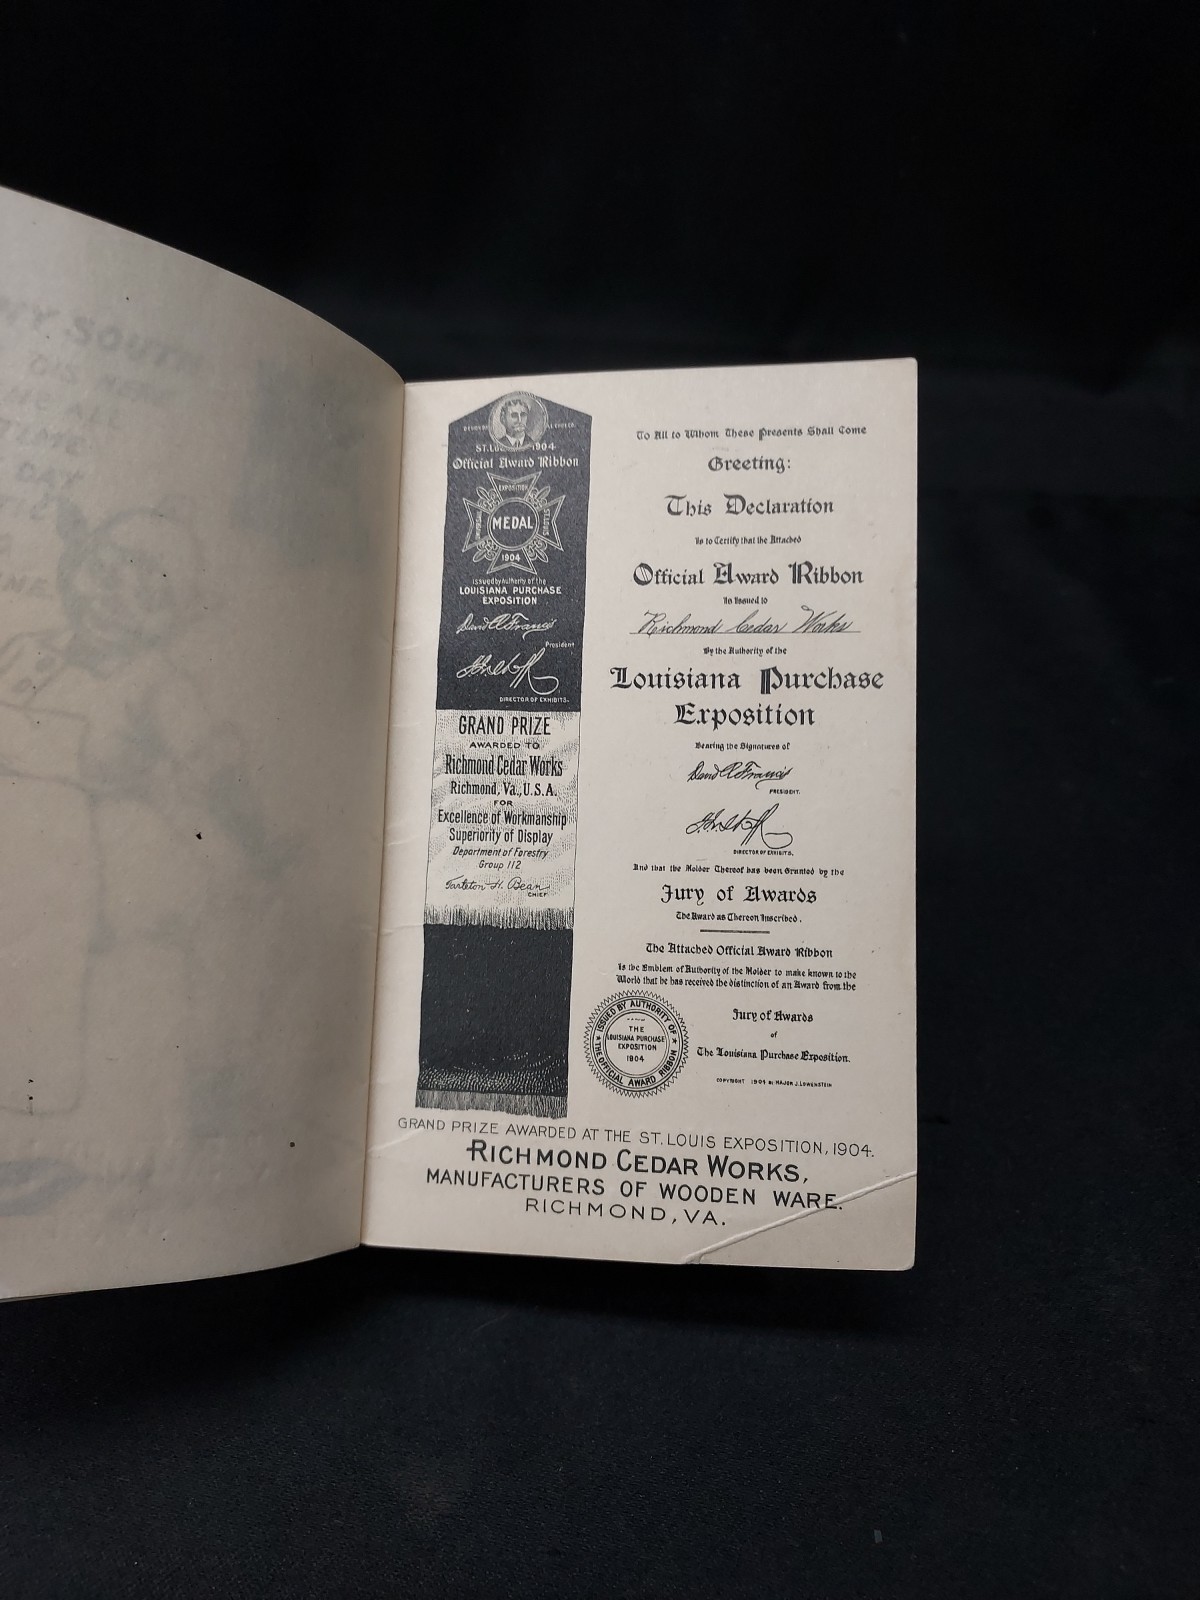 ST. LOUIS 1904
Official Award Ribbon
EXPOSITION
ST. LOUIS
MEDAL
1904
Issued by Authority of the
LOUISIANA PURCHASE
EXPOSITION
David R. Francis
President
DIRECTOR OF EXHIBITS.
GRAND PRIZE
AWARDED TO
Richmond Cedar Works
Richmond, Va., U.S.A.
FOR
Excellence of Workmanship
Superiority of Display
Department of Forestry
Group 112
Tarleton H. Bean
CHIEF
To All to Whom These Presents Shall Come
Greeting:
This Declaration
Is to Certify that the Attached
Official Award Ribbon
Is Issued to
Richmond Cedar Works
By the Authority of the
Louisiana Purchase
Exposition
Bearing the Signatures of
David R. Francis
PRESIDENT.
DIRECTOR OF EXHIBITS.
And that the Holder Thereof has been Granted by the
Jury of Awards
The Award as Thereon Inscribed.
The Attached Official Award Ribbon
Is the Emblem of Authority of the Holder to make known to the
World that he has received the distinction of an Award from the
Jury of Awards
of
The Louisiana Purchase Exposition.
COPYRIGHT 1904 BY MAJOR J. LOWENSTEIN
ISSUED BY AUTHORITY OF
THE
LOUISIANA PURCHASE
EXPOSITION
1904
THE OFFICIAL AWARD RIBBON
GRAND PRIZE AWARDED AT THE ST. LOUIS EXPOSITION, 1904.
RICHMOND CEDAR WORKS,
MANUFACTURERS OF WOODEN WARE.
RICHMOND, VA.